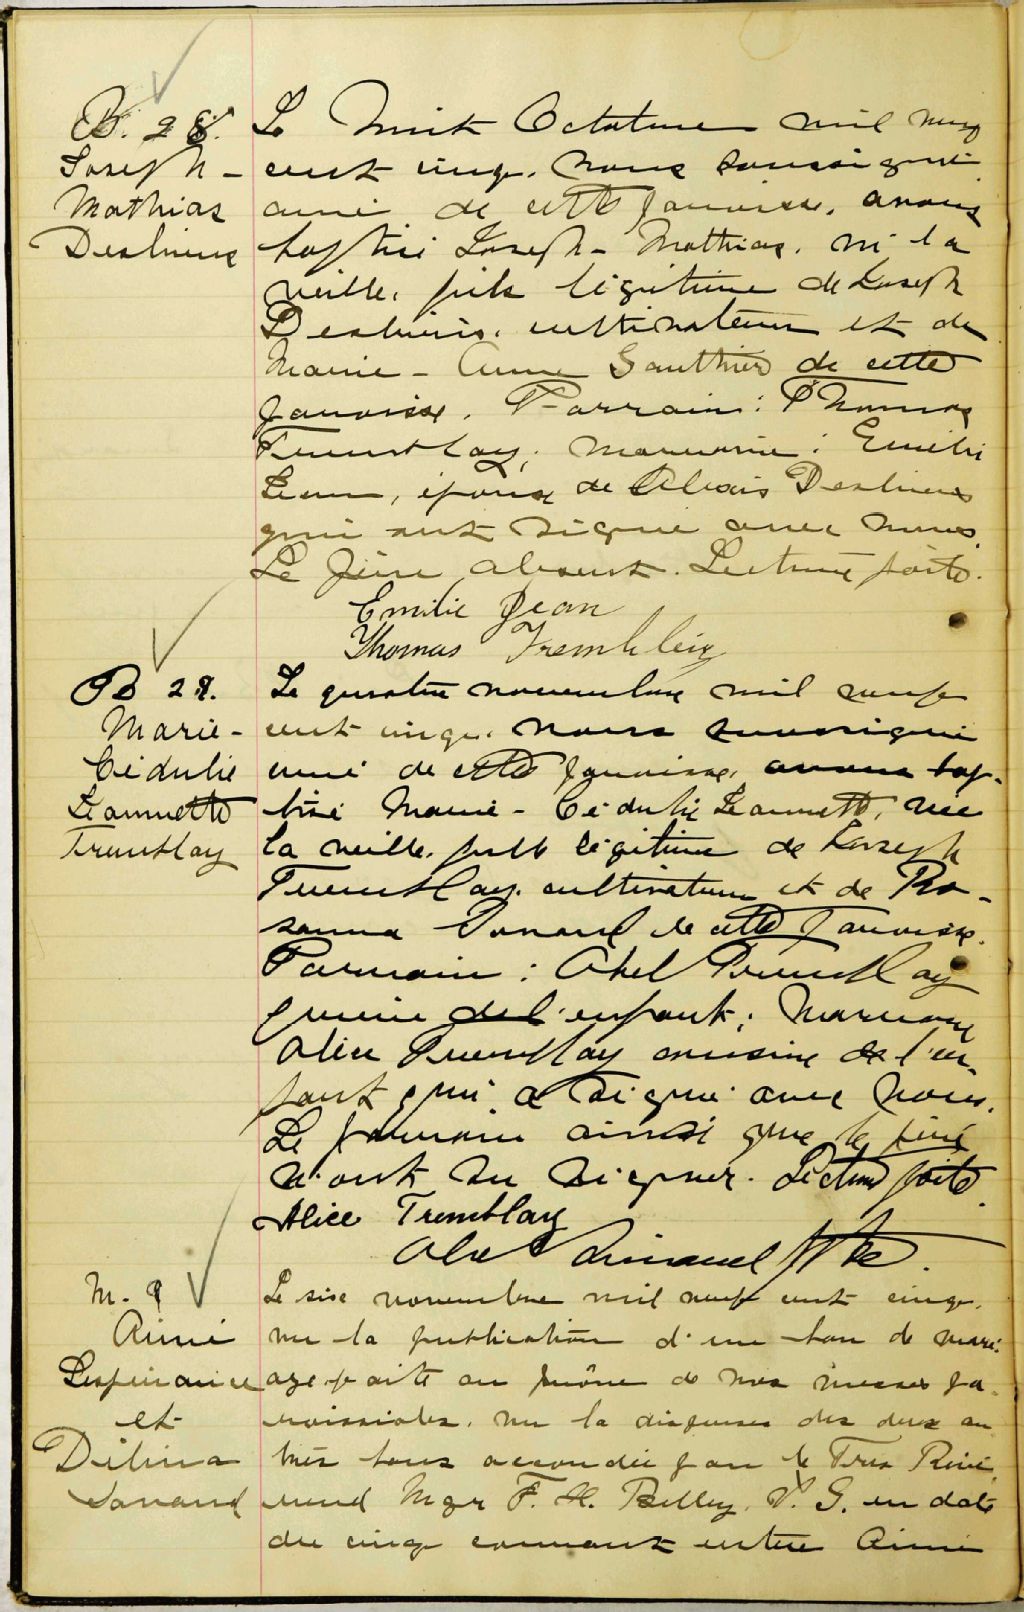 B. 28.
Joseph-
Mathias
Desbiens
Le huit Octobre mil neuf
cent cinq, nous soussigné
curé de cette paroisse, avons
baptisé Joseph-Mathias, né la
veille, fils légitime de Joseph
Desbiens, cultivateur et de
Marie-Anne Gauthier de cette
paroisse. Parrain: Thomas
Tremblay; marraine: Emilie
Jean, épouse de Alexis Desbiens
qui ont signé avec nous.
Le père absent. Lecture faite.
Emilie Jean
Thomas Tremblay
B 29.
Marie-
Cédulie
Jeannette
Tremblay
Le quatre novembre mil neuf
cent cinq, nous soussigné
curé de cette paroisse, avons bap-
tisé Marie-Cédulie Jeannette, née
la veille, fille légitime de Joseph
Tremblay, cultivateur et de Ro-
sanna Savard de cette paroisse.
Parrain: Abel Tremblay
de l'enfant; Marraine
Alice Tremblay cousine de l'en-
fant qui a signé avec nous.
Le parrain ainsi que le père
n'ont su signer. Lecture faite.
Alice Tremblay
Ptre.
M. 9
Aimé
Lespérance
et
Délina
Savard
Le six novembre mil neuf cent cinq,
vu la publication d'un ban de mari-
age faite au prône de nos messes pa-
roissiales, vu la dispense des deux au-
tres bans accordée par le Très Révé-
rend Mgr F. H. Belley, V. G. en date
du cinq courant entre Aimé